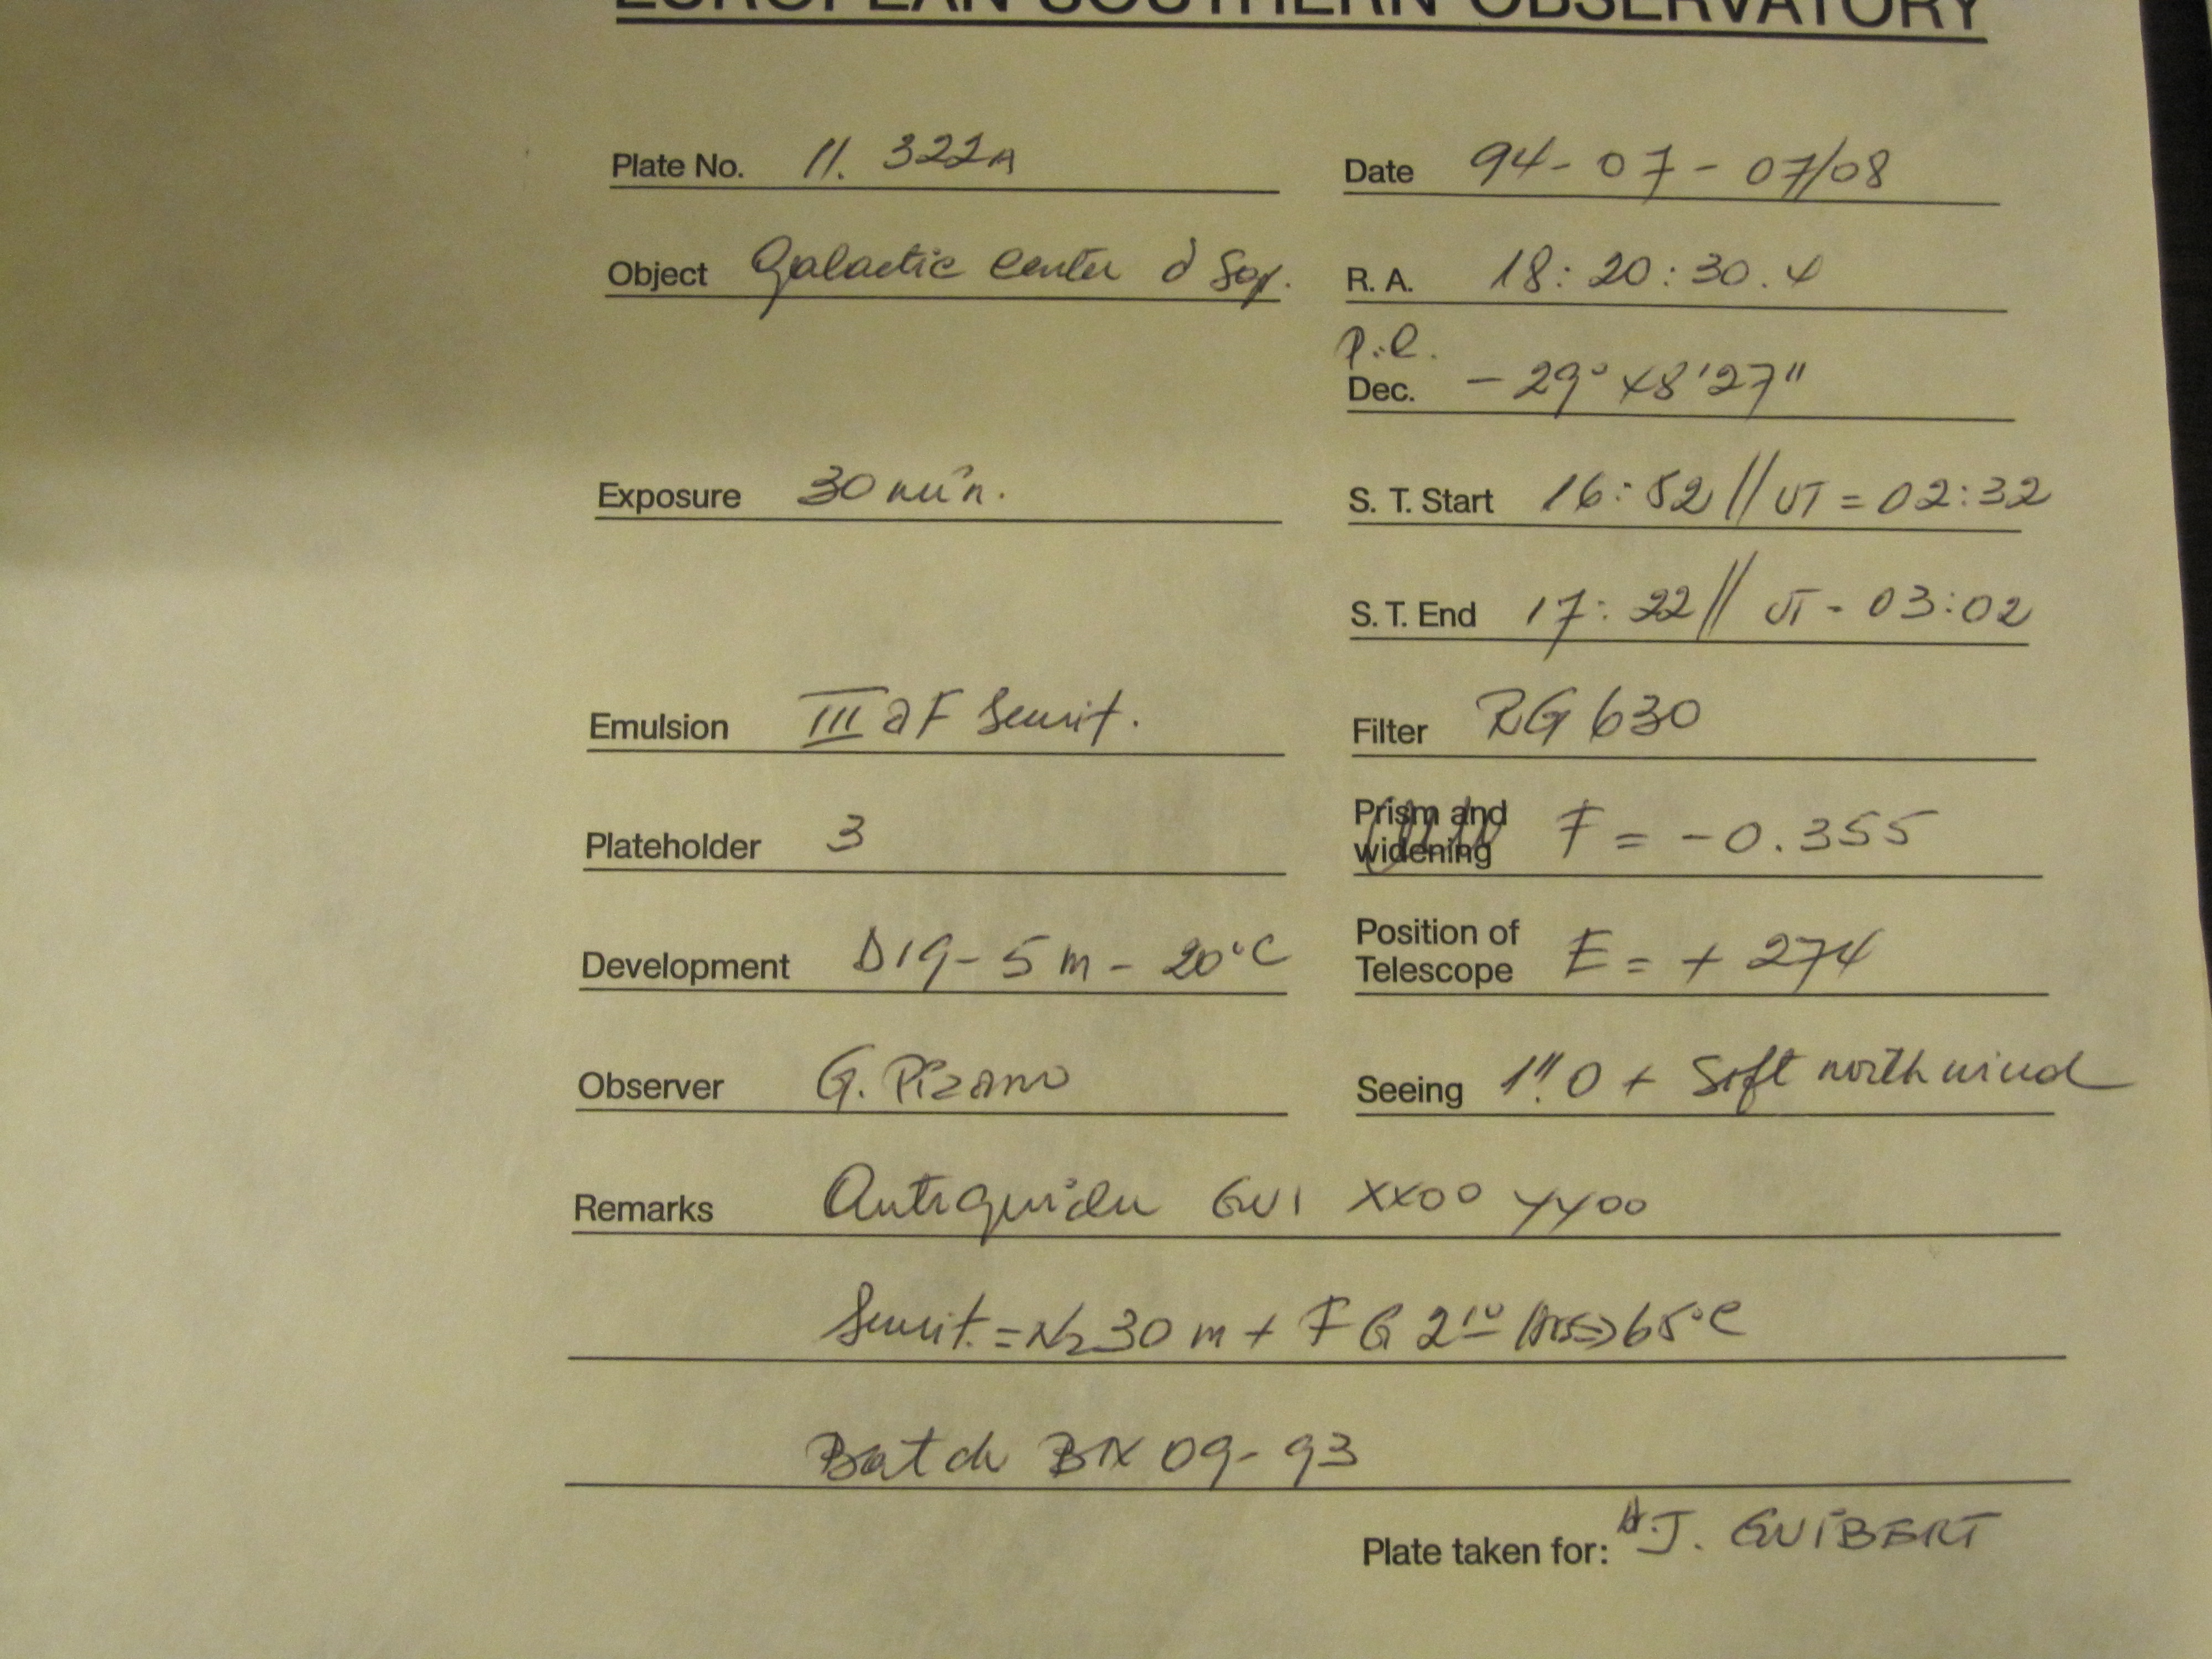 EUROPEAN SOUTHERN OBSERVATORY
Plate No. 11. 322A
Date 94-07-07/08
Object Galactic Center d Sgr.
R. A. 18:20:30.4
p.e.
Dec. -29° 48'27"
Exposure 30 min.
S. T. Start 16:52 // UT = 02:32
S. T. End 17:22 // UT - 03:02
Emulsion III aF Sensit.
Filter RG 630
Plateholder 3
Prism and widening F = -0.355
Development D19 - 5 m - 20°C
Position of Telescope E = + 274
Observer G. Pizarro
Seeing 1".0 + Soft north wind
Remarks Autoguider GUI XX00 YY00
Sensit. = N2 30 m + FG 2 65°C
Batch 09-93
Plate taken for: J. GUIBERT